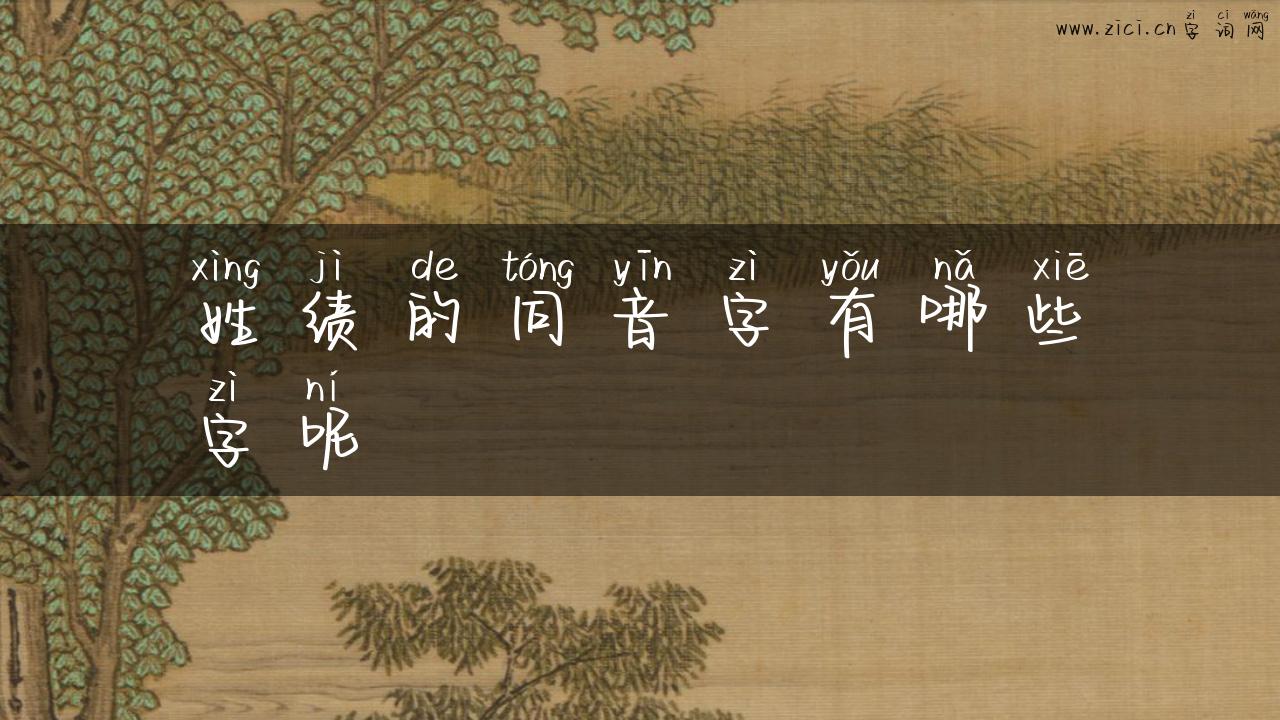 zì cí wǎng
www.zici.cn字词网
xìng jì de tóng yīn zì yǒu nǎ xiē
姓绩的同音字有哪些
zì ní
字呢